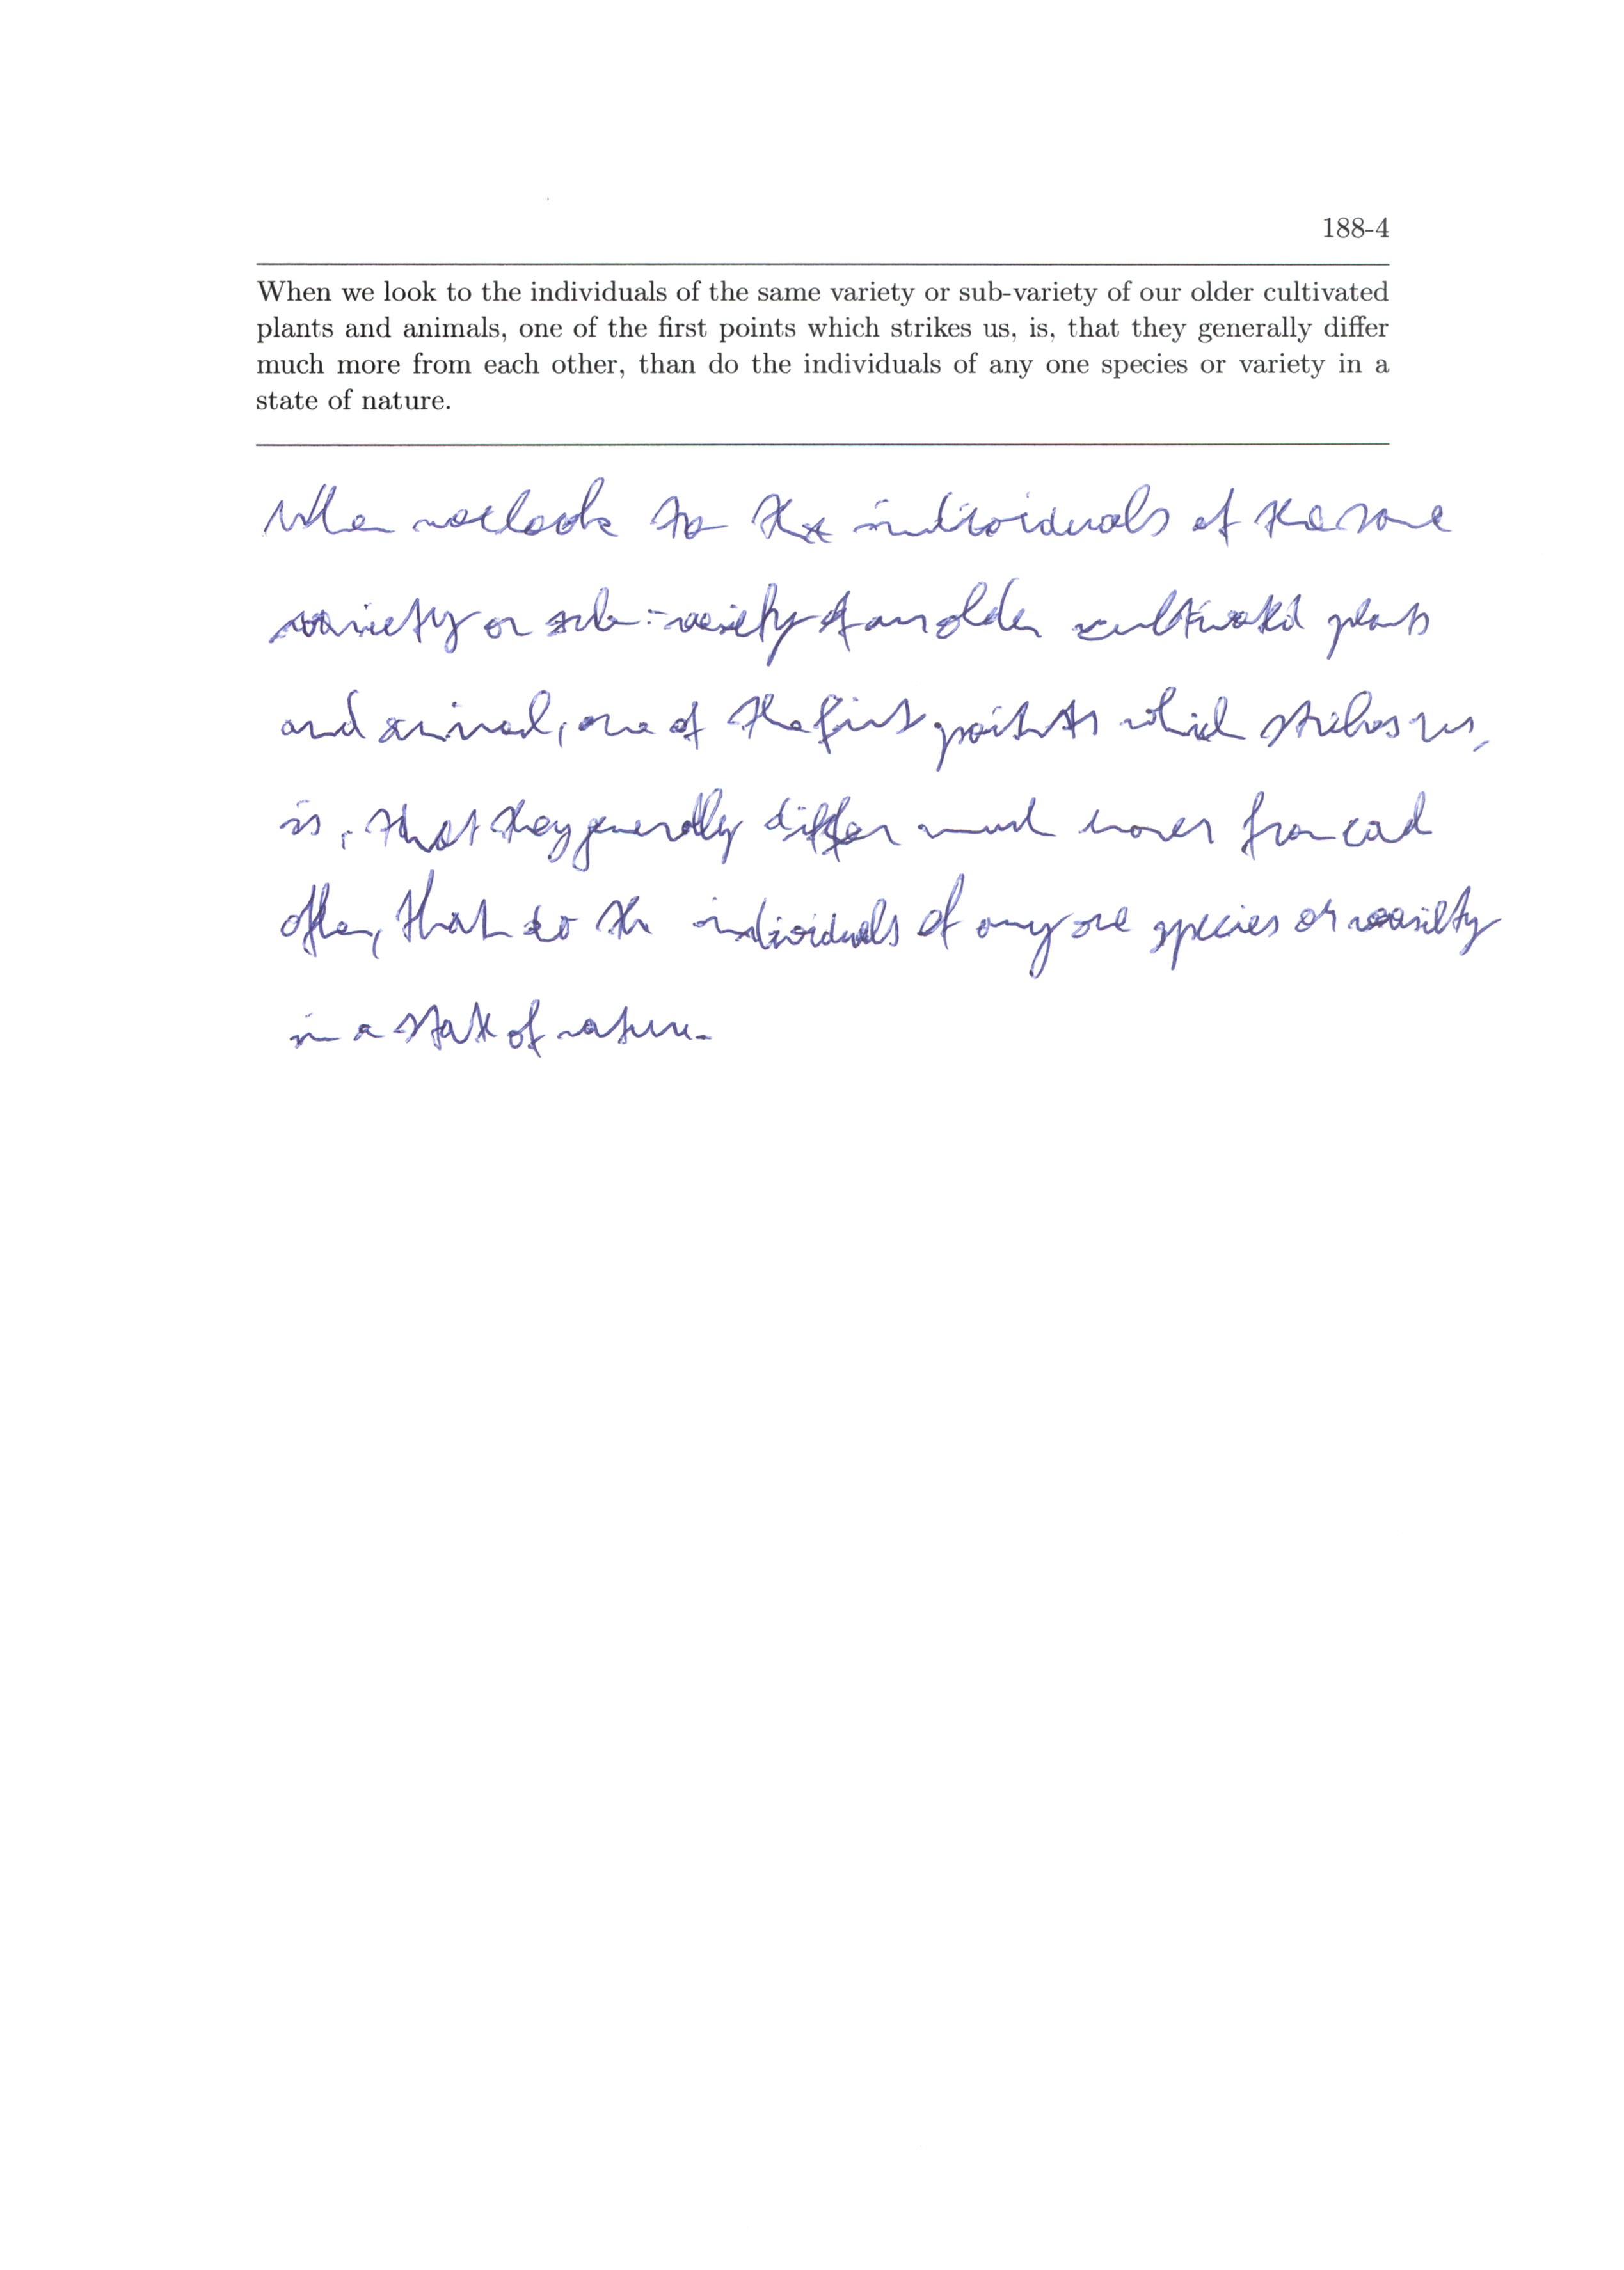 188-4
When we look to the individuals of the same variety or sub-variety of our older cultivated
plants and animals, one of the first points which strikes us, is, that they generally differ
much more from each other, than do the individuals of any one species or variety in a
state of nature.
When we look to the individuals of the same
variety or sub-variety of our older cultivated plants
and animal, one of the first points which strikes us,
is, that they generally differ much more from each
other, than do the individuals of any one species or variety
in a state of nature.